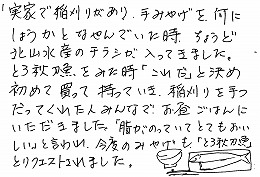 「実家で稲刈りがあり、手みやげを何に
しょうかとなやんでいた時、ちょうど
北山水産のチラシが入ってきました。
とろ秋刀魚をみた時「これだ」と決め
初めて買って持っていき、稲刈りを手つ
だってくれた人みんなで、お昼ごはんに
いただきました。「脂がのっていてとてもおい
しい」と言われ、今度のみやげも「とろ秋刀魚」
とリクエストされました。